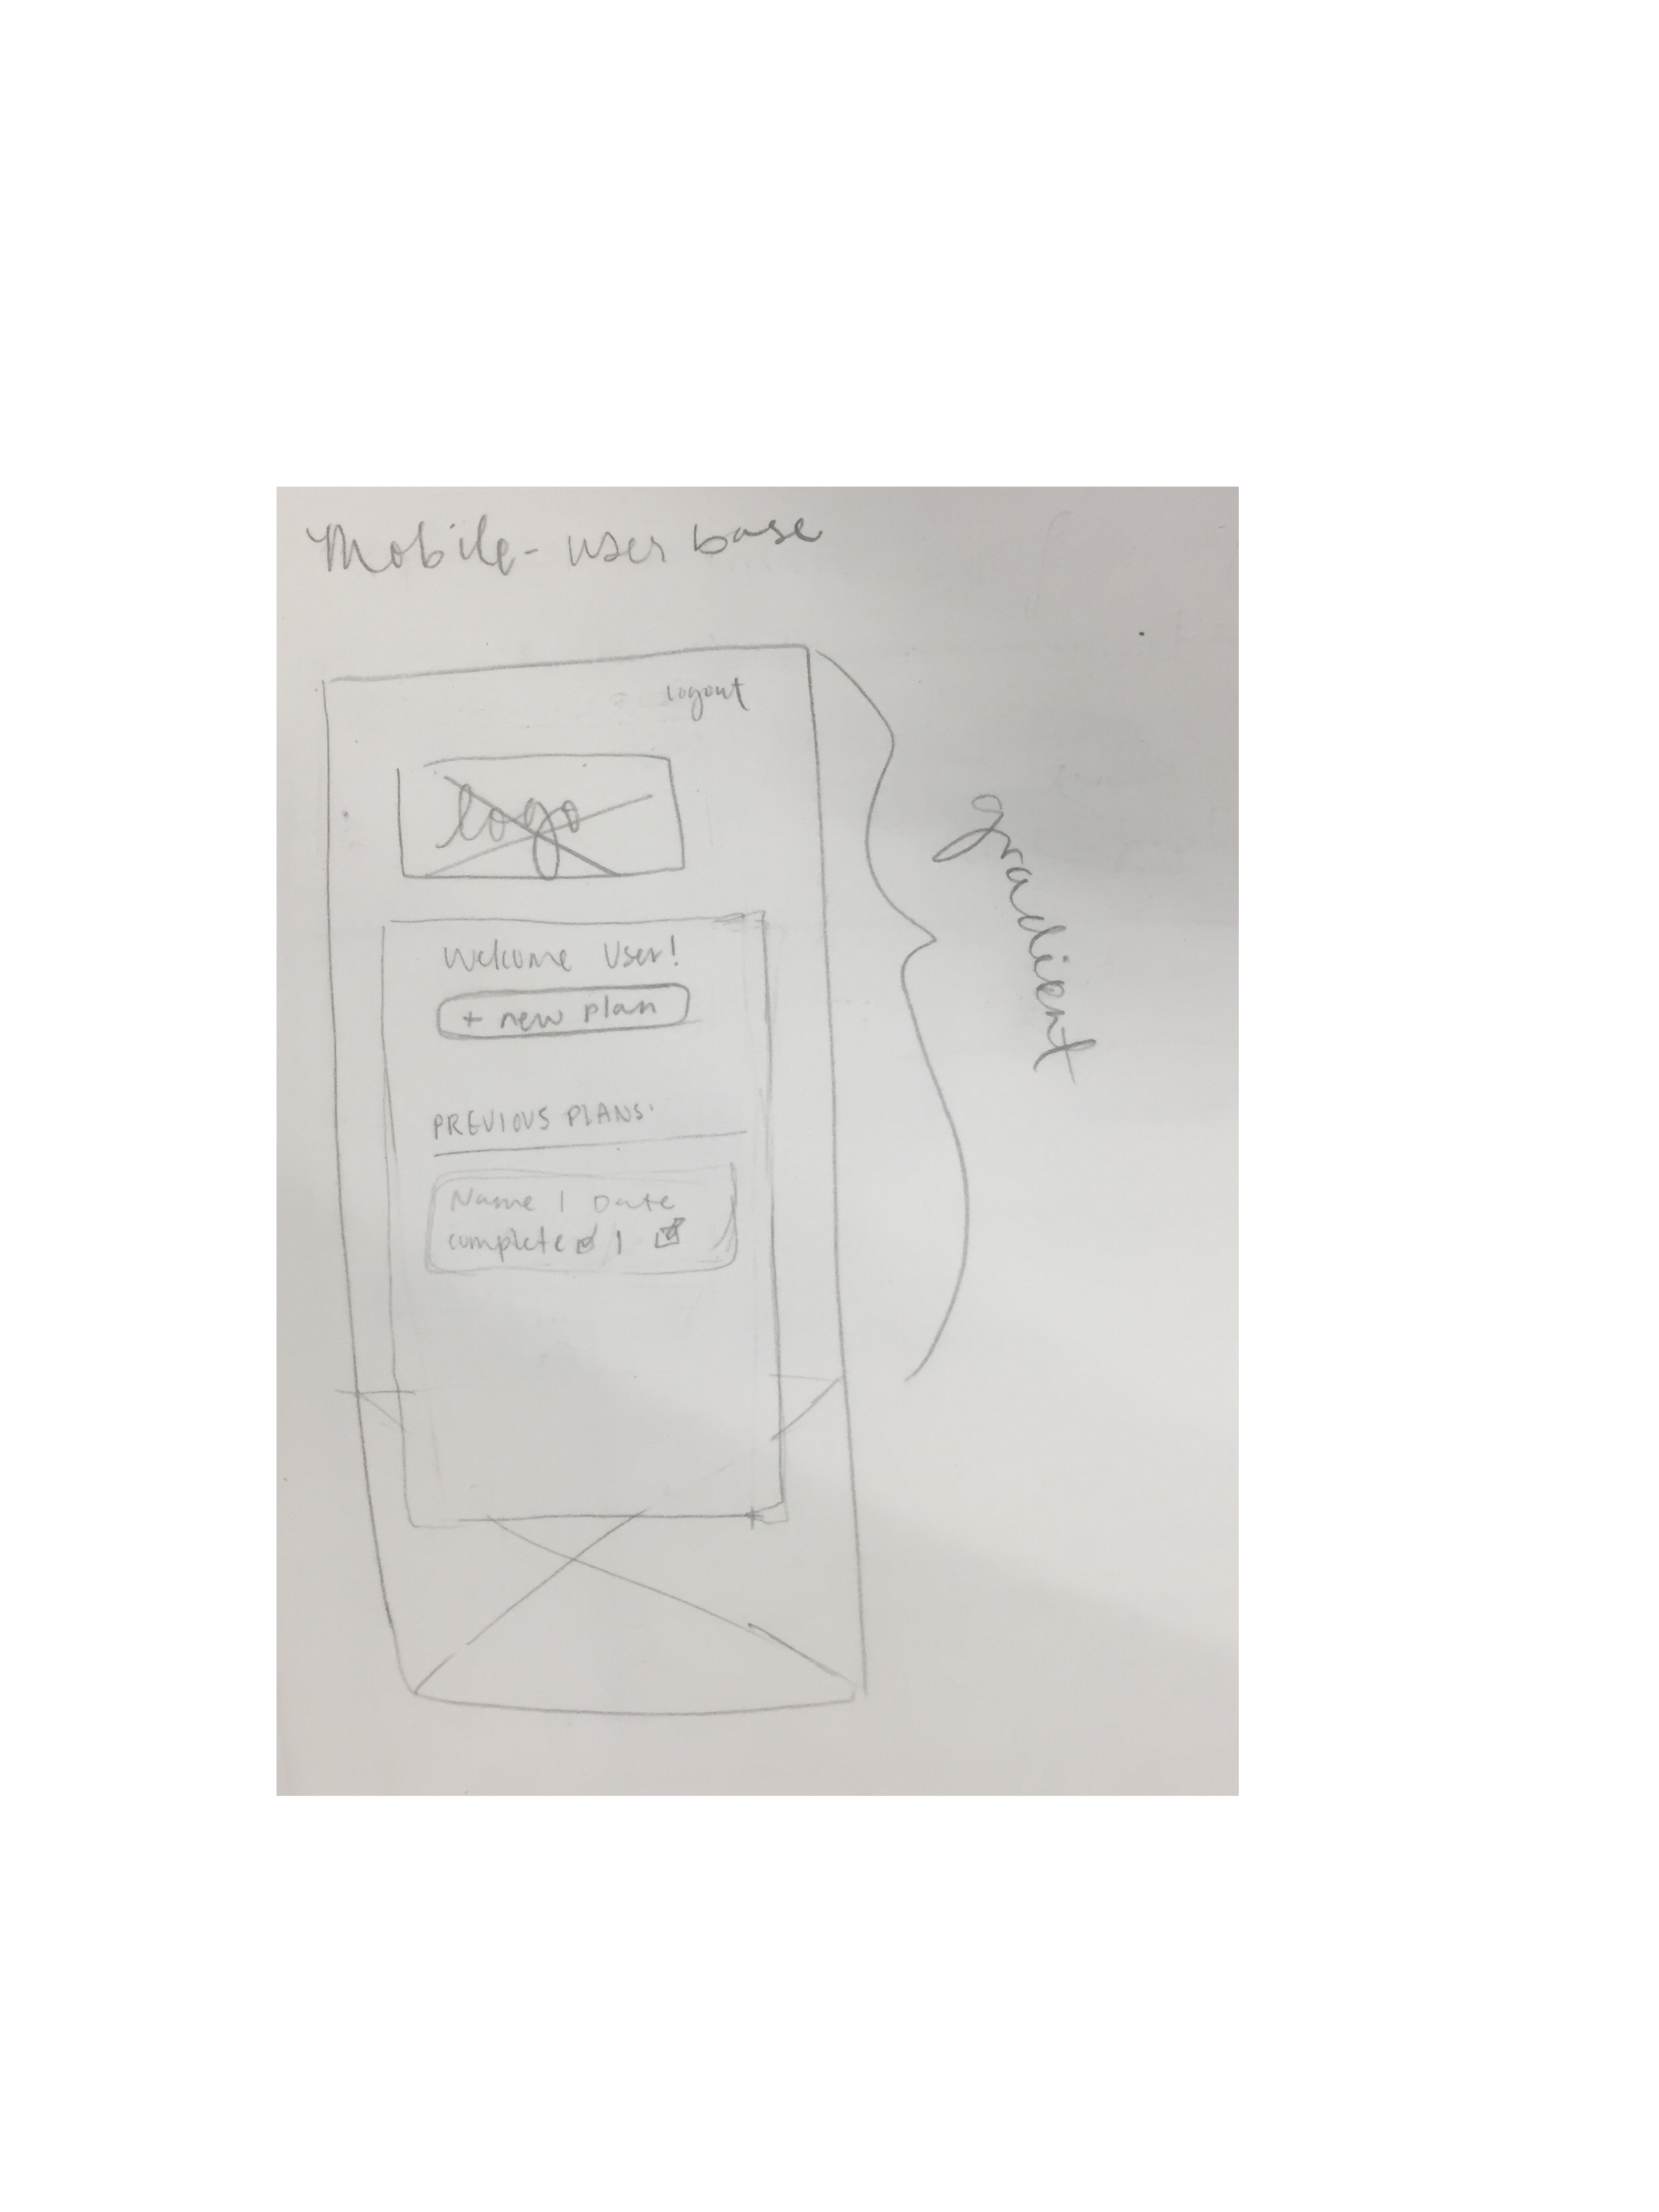 Mobile - user base
logout
logo
Welcome User!
+ new plan
PREVIOUS PLANS:
Name | Date
complete ☑ |
gradient